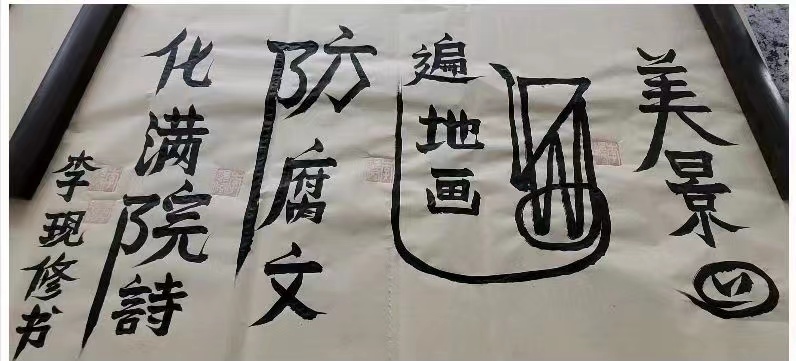 美景
遍地画
防腐文
化满院詩
李现修书